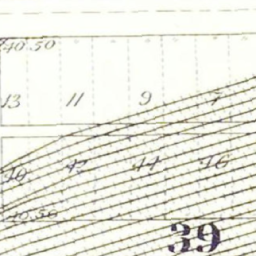 40.50
13 11 9 7
40 42 44 46
40.50
39